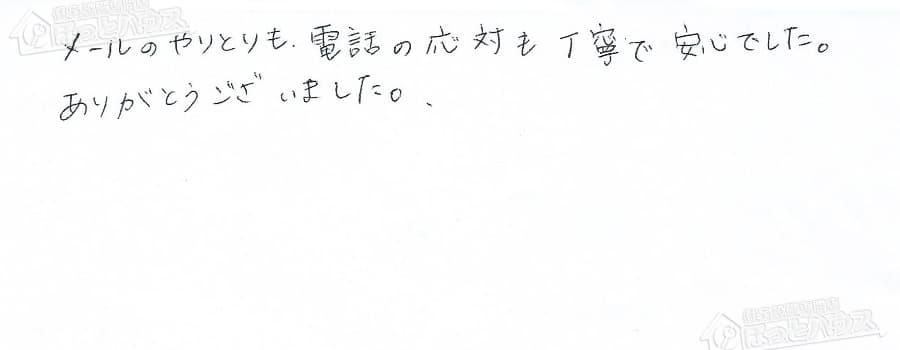 メールのやりとりも、電話の応対も丁寧で安心でした。
ありがとうございました。
ほっとハウス
ほっとハウス